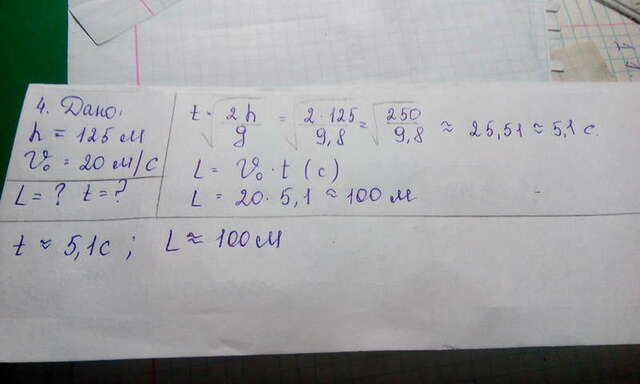 4. Дано:
h = 125 м
V₀ = 20 м/с
L = ? t = ?
t = √(2h/g) = √(2·125/9,8) = √(250/9,8) ≈ 25,51 ≈ 5,1 с.
L = V₀ · t (с)
L = 20 · 5,1 ≈ 100 м
t ≈ 5,1с ; L ≈ 100м